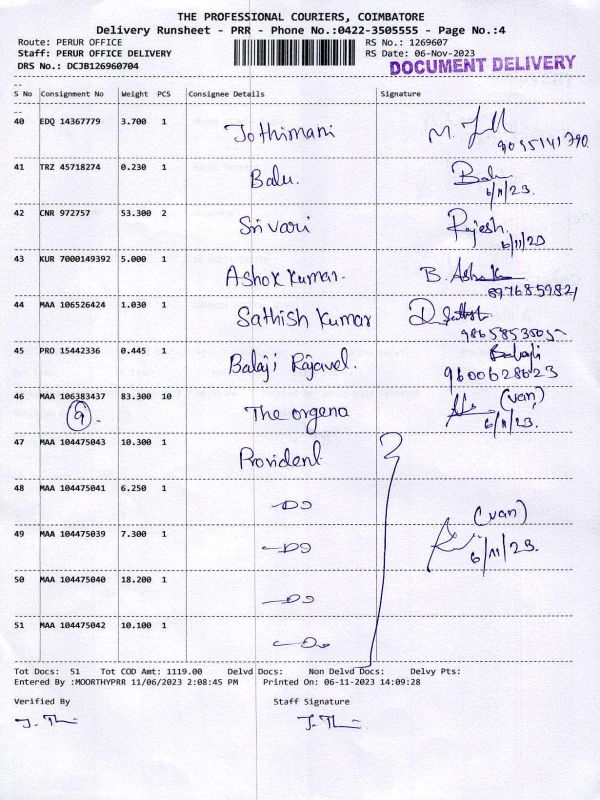 THE PROFESSIONAL COURIERS, COIMBATORE
Delivery Runsheet - PRR - Phone No.:0422-3505555 - Page No.:4
Route: PERUR OFFICE RS No.: 1269607
Staff: PERUR OFFICE DELIVERY RS Date: 06-Nov-2023
DRS No.: DCJB126960704 DOCUMENT DELIVERY
S No Consignment No Weight PCS Consignee Details Signature
40 EDQ 14367779 3.700 1 Jothimani
41 TRZ 45718274 0.230 1 Balu. Balu
6/11/23.
42 CNR 972757 53.300 2 Srivari Rajesh.
6/11/23
43 KUR 7000149392 5.000 1 Ashok Kumar. B. Ashok
44 MAA 106526424 1.030 1 Sathish Kumar
45 PRO 15442336 0.445 1 Balaji Rajavel. Balaji
9600628623
46 MAA 106383437 83.300 10 The orgena (van)
9. 6/11/23.
47 MAA 104475043 10.300 1 Provident
48 MAA 104475041 6.250 1 Do
(van)
49 MAA 104475039 7.300 1 Do 6/11/23.
50 MAA 104475040 18.200 1 Do
51 MAA 104475042 10.100 1 Do
Tot Docs: 51 Tot COD Amt: 1119.00 Delvd Docs: Non Delvd Docs: Delvy Pts:
Entered By :MOORTHYPRR 11/06/2023 2:08:45 PM Printed On: 06-11-2023 14:09:28
Verified By Staff Signature